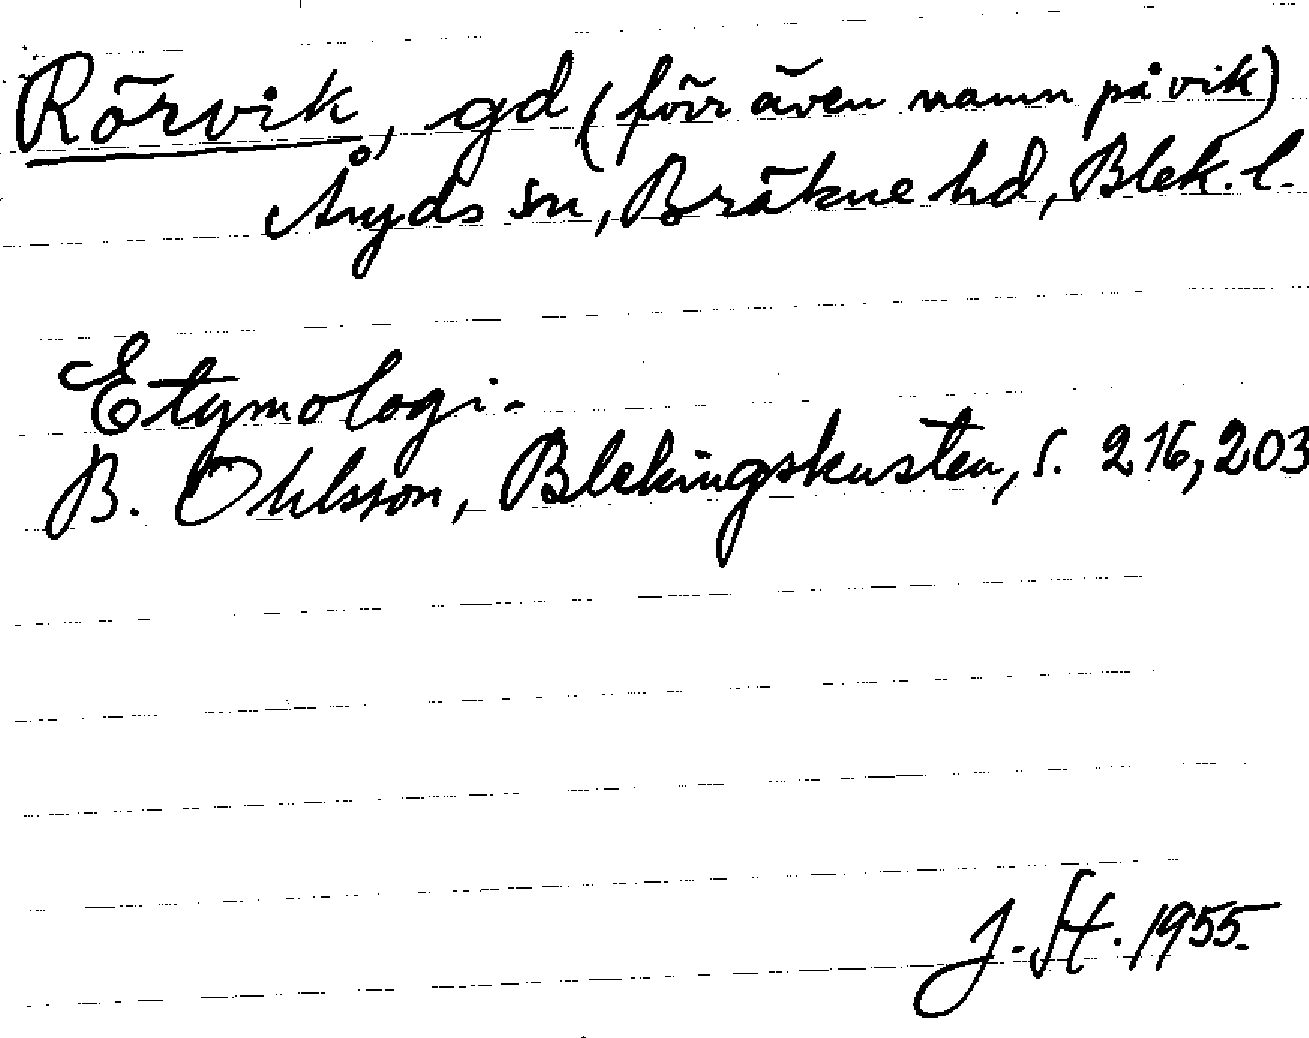 Rörvik, gd (förr även namn på vik)
Åryds sn, Bräkne hd, Blek. l.
Etymologi.
B. Ohlsson, Blekingskusten, s. 216, 203
J. St. 1955.